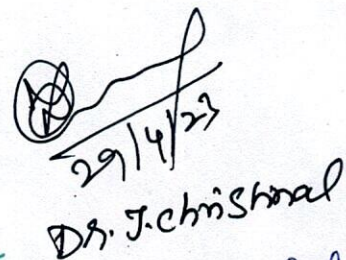 29/4/23
Dr. J. Christinal